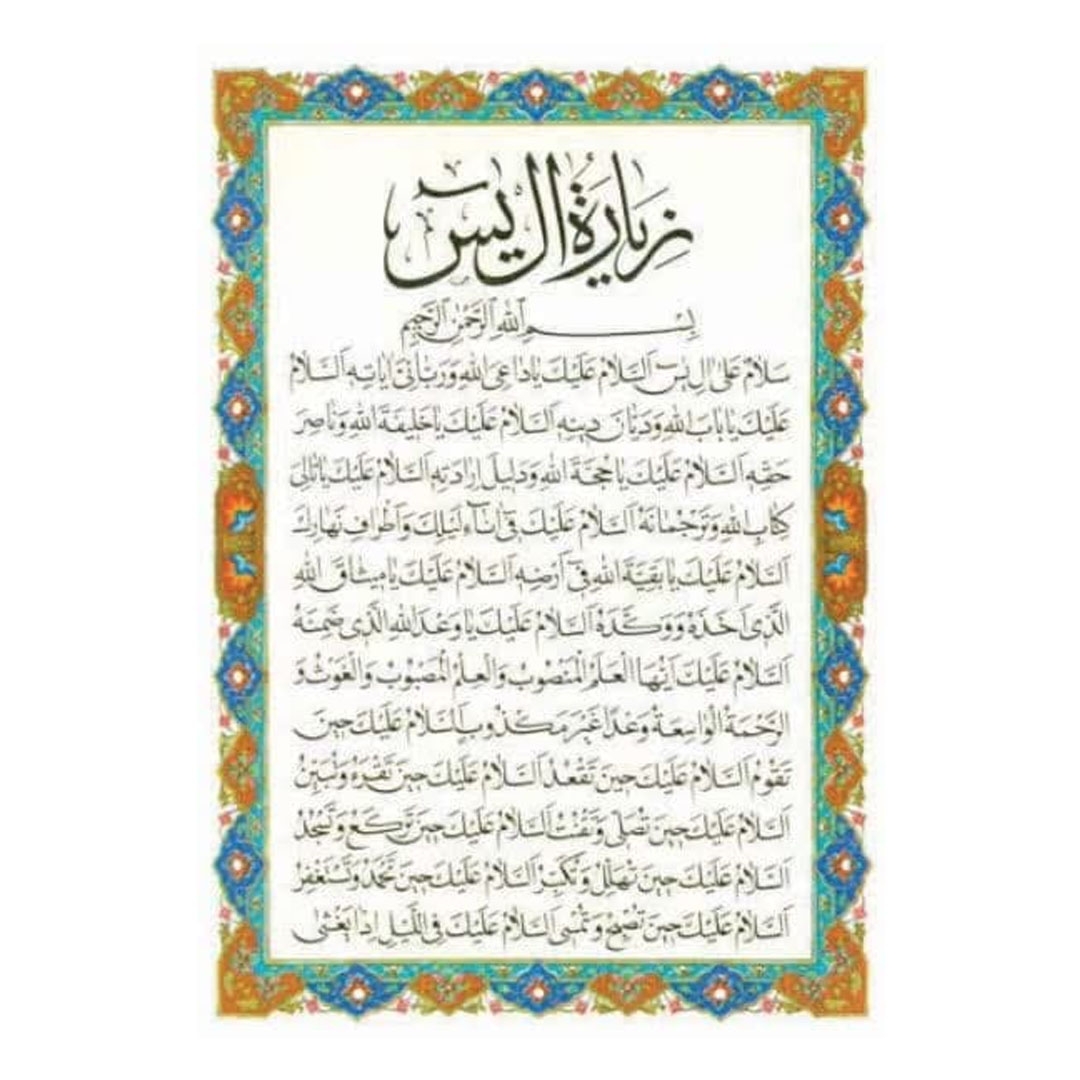 زِيَارَةُ الِ يٰسۤ
بِسْمِ اللهِ الرَّحْمٰنِ الرَّحِيمِ
سَلَامٌ عَلىٰ الِ يٰسۤ اَلسَّلَامُ عَلَيْكَ يَا دَاعِىَ اللهِ وَرَبَّانِىَّ ايَاتِهِ اَلسَّلَامُ
عَلَيْكَ يَا بَابَ اللهِ وَدَيَّانَ دِينِهِ اَلسَّلَامُ عَلَيْكَ يَا خَلِيفَةَ اللهِ وَنَاصِرَ
حَقِّهِ اَلسَّلَامُ عَلَيْكَ يَا حُجَّةَ اللهِ وَدَلِيلَ اِرَادَتِهِ اَلسَّلَامُ عَلَيْكَ يَا تَالِىَ
كِتَابِ اللهِ وَتَرْجُمَانَهُ اَلسَّلَامُ عَلَيْكَ فِى انَاۤءِ لَيْلِكَ وَاَطْرَافِ نَهَارِكَ
اَلسَّلَامُ عَلَيْكَ يَا بَقِيَّةَ اللهِ فِىۤ اَرْضِهِ اَلسَّلَامُ عَلَيْكَ يَا مِيثَاقَ اللهِ
الَّذِى اَخَذَهُ وَوَكَّدَهُ اَلسَّلَامُ عَلَيْكَ يَا وَعْدَ اللهِ الَّذِى ضَمِنَهُ
اَلسَّلَامُ عَلَيْكَ اَيُّهَا الْعَلَمُ الْمَنْصُوبُ وَالْعِلْمُ الْمَصْبُوبُ وَالْغَوْثُ وَ
الرَّحْمَةُ الْوَاسِعَةُ وَعْدًا غَيْرَ مَكْذُوبٍ اَلسَّلَامُ عَلَيْكَ حِينَ
تَقُومُ اَلسَّلَامُ عَلَيْكَ حِينَ تَقْعُدُ اَلسَّلَامُ عَلَيْكَ حِينَ تَقْرَءُ وَتُبَيِّنُ
اَلسَّلَامُ عَلَيْكَ حِينَ تُصَلِّى وَتَقْنُتُ اَلسَّلَامُ عَلَيْكَ حِينَ تَرْكَعُ وَتَسْجُدُ
اَلسَّلَامُ عَلَيْكَ حِينَ تُهَلِّلُ وَتُكَبِّرُ اَلسَّلَامُ عَلَيْكَ حِينَ تَحْمَدُ وَتَسْتَغْفِرُ
اَلسَّلَامُ عَلَيْكَ حِينَ تُصْبِحُ وَتُمْسِى اَلسَّلَامُ عَلَيْكَ فِى اللَّيْلِ اِذَا يَغْشىٰ